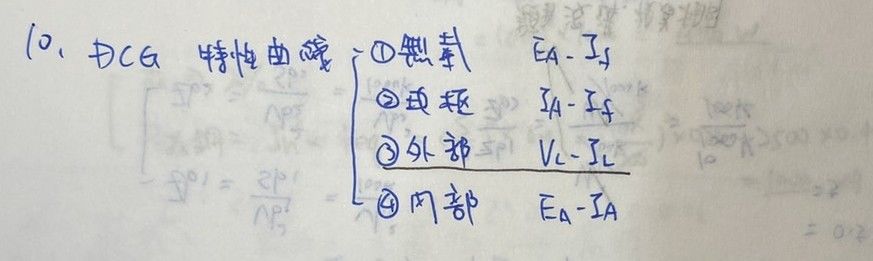 10. DCG 特性曲線 ①無載 EA - If
②電樞 IA - If
③外部 VL - IL
④內部 EA - IA